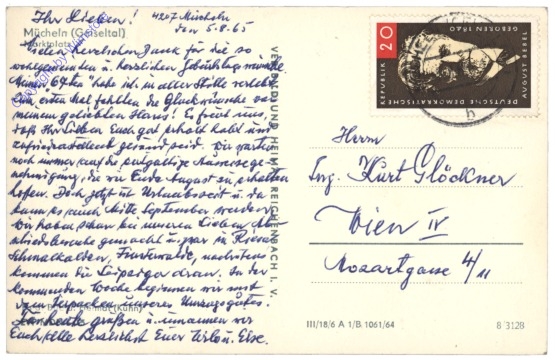 Ihr Lieben! 4207 Mücheln
den 5.8.65
Mücheln (Geiseltal)
Marktplatz
Vielen herzlichen Dank für die so
wohlgemeinten u. herzlichen Geburtstagswünsche
Meinen 67ten habe ich in aller Stille verlebt
zum ersten Mal fehlten die Glückwünsche von
meinem geliebten Hans! Es freut uns,
daß Ihr Lieben Euch gut erholt habt und
zufriedenstellend gesund seid. Wir warten
noch immer auf die endgültige Ausreisege-
nehmigung, die wir Ende August zu erhalten
hoffen. Doch jetzt ist Urlaubszeit u. da
kann es auch Mitte September werden.
Wir haben schon bei unseren Lieben Ab-
schiedsbesuche gemacht u. zwar in Riesa
Schmalkalden, Finsterwalde, nächstens
kommen die Leipziger dran. In der
kommenden Woche beginnen wir mit
dem Verpacken unseres Umzugsgutes.
Für heute grüßen u. umarmen wir
Euch alle herzlichst Euer u. Else.
(Kühn)
VERLAG UND HEIMAT REICHENBACH I. V.
DEUTSCHE DEMOKRATISCHE REPUBLIK 20
AUGUST BEBEL
GEBOREN 1840
b
Herrn
Ing. Kurt Glöckner
Wien IV
Mozartgasse 4/11
III/18/6 A 1/B 1061/64
8 3128